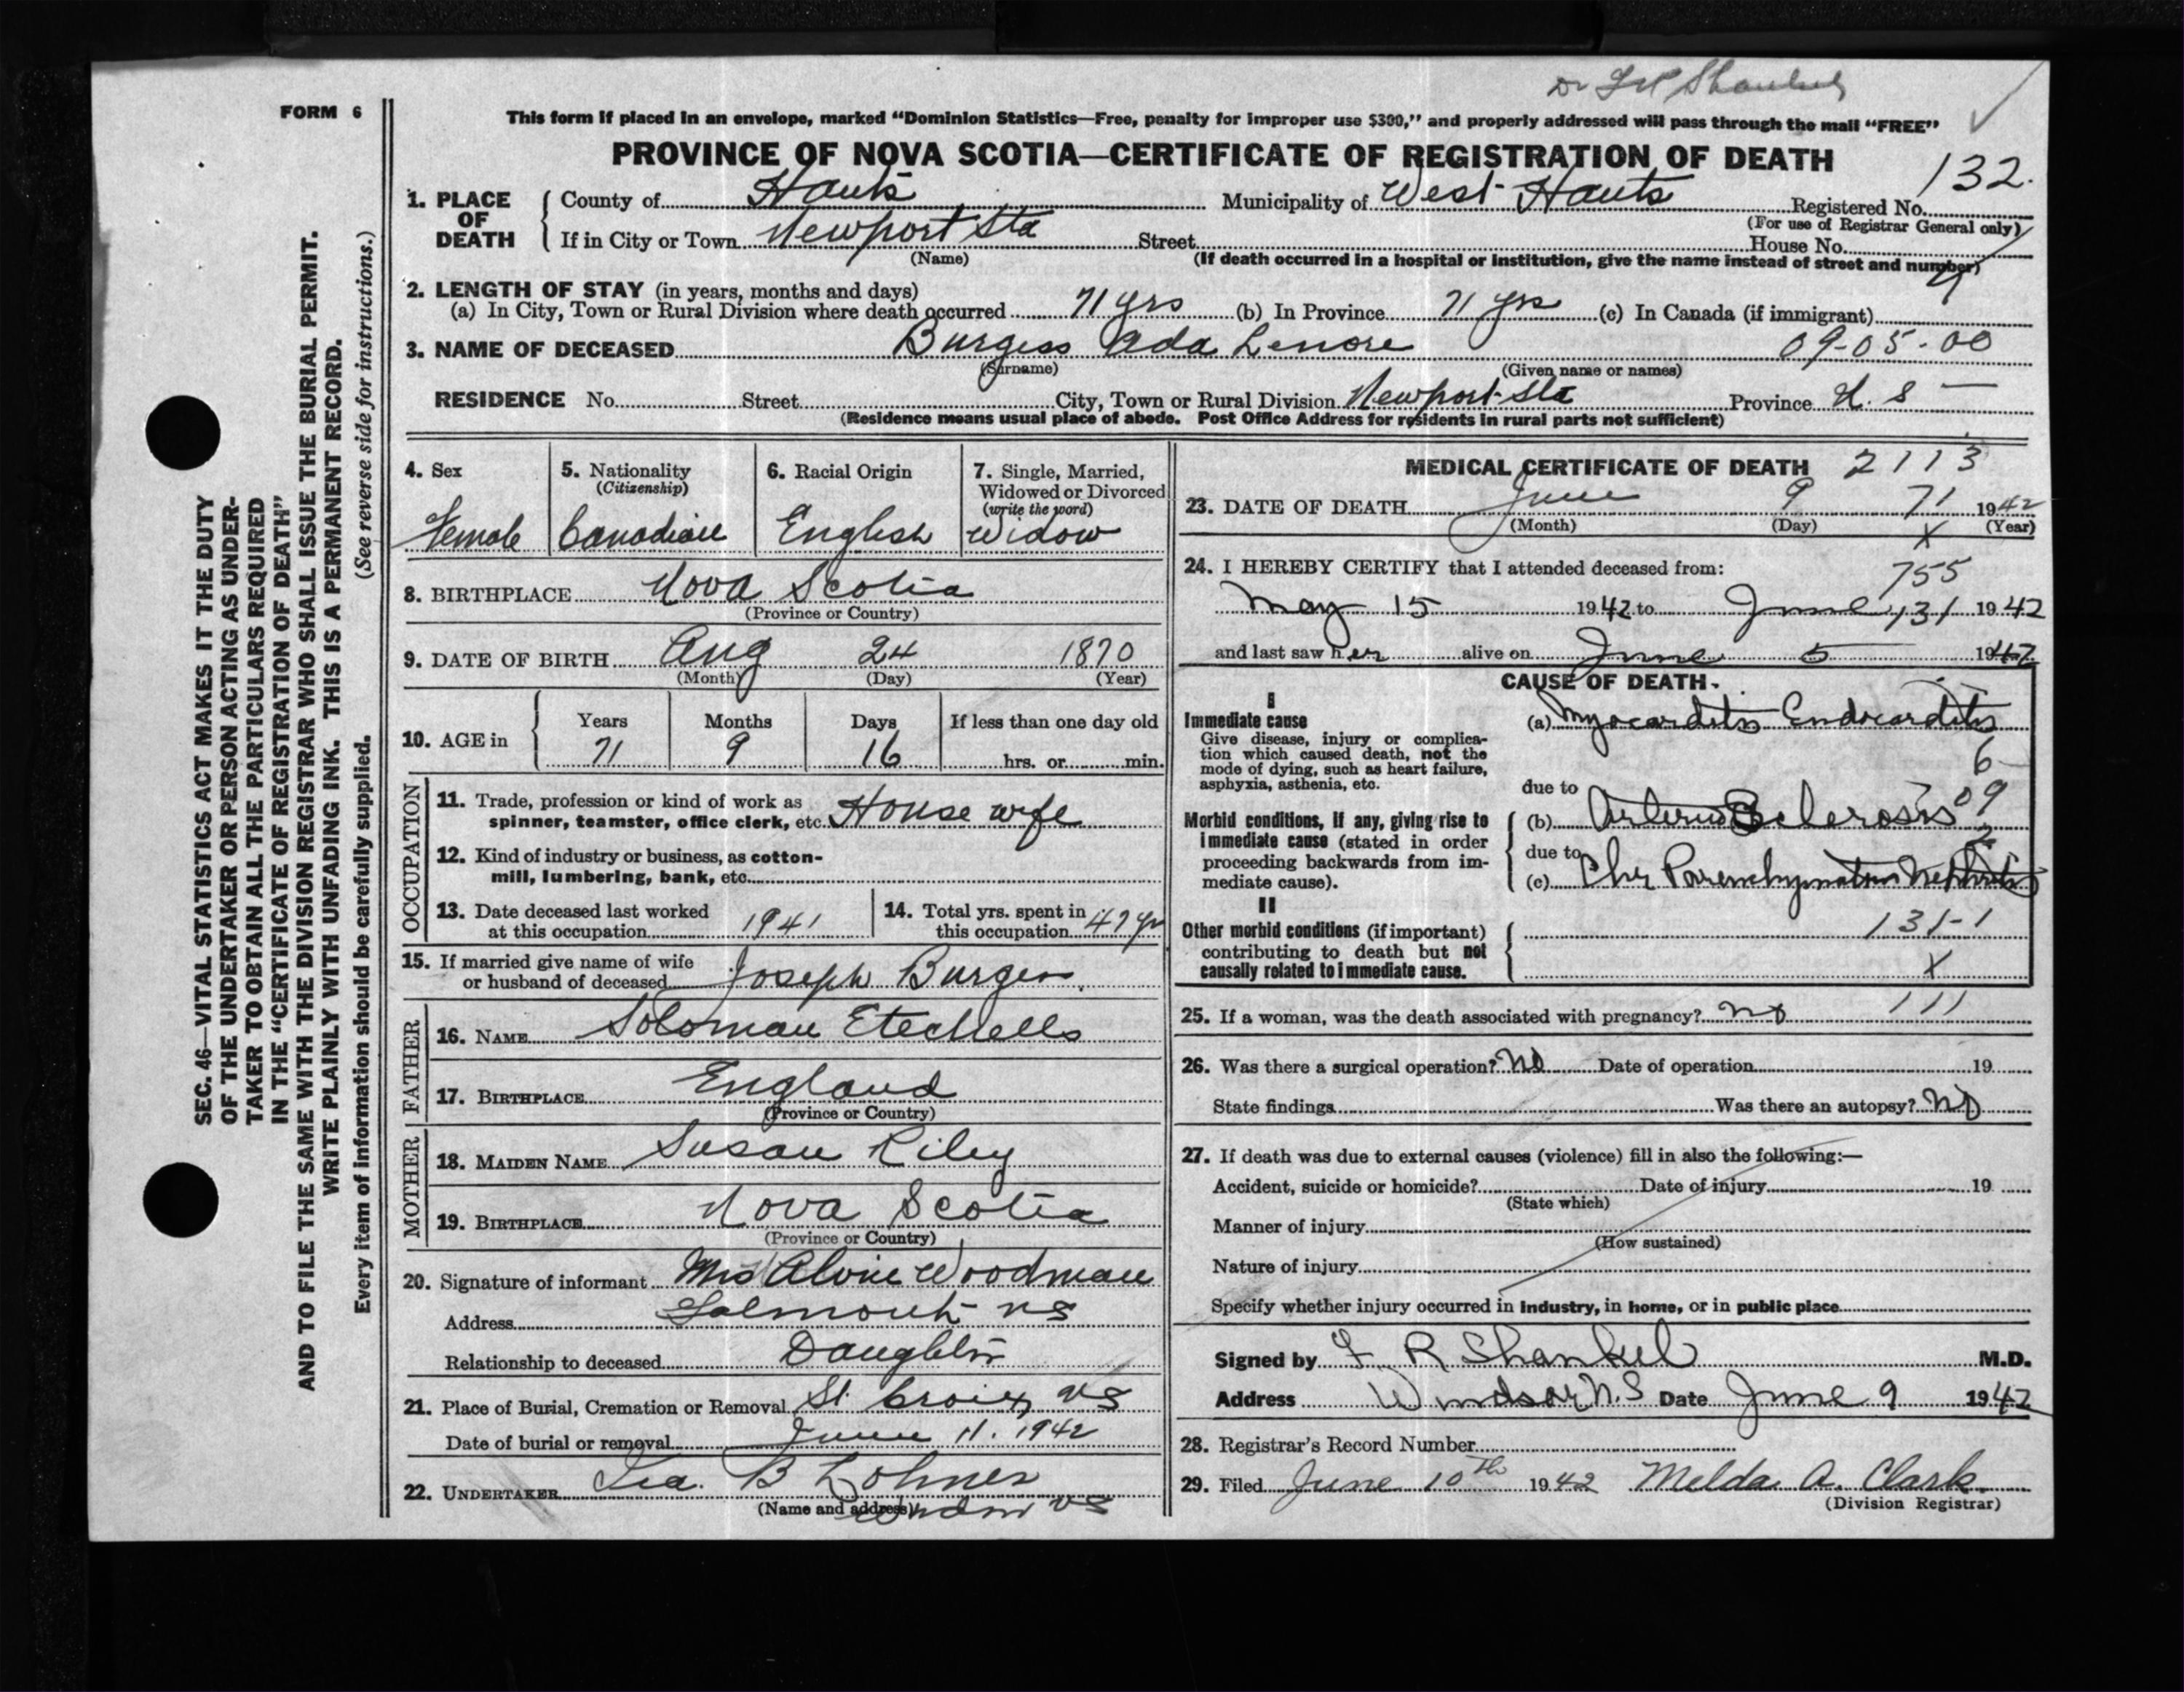 Dr F R Shankel
FORM 6
This form if placed in an envelope, marked "Dominion Statistics—Free, penalty for improper use $300," and properly addressed will pass through the mail "FREE"
PROVINCE OF NOVA SCOTIA—CERTIFICATE OF REGISTRATION OF DEATH
132.
1. PLACE OF DEATH
County of Hants Municipality of West Hants Registered No.
(For use of Registrar General only)
If in City or Town Newport Sta Street House No.
(Name) (If death occurred in a hospital or institution, give the name instead of street and number)
2. LENGTH OF STAY (in years, months and days)
(a) In City, Town or Rural Division where death occurred 71 yrs (b) In Province 71 yrs (c) In Canada (if immigrant)
3. NAME OF DECEASED Burgess Ada Lenore 09-05-00
(Surname) (Given name or names)
RESIDENCE No. Street City, Town or Rural Division Newport Sta Province N. S
(Residence means usual place of abode. Post Office Address for residents in rural parts not sufficient)
4. Sex
Female
5. Nationality
(Citizenship)
Canadian
6. Racial Origin
English
7. Single, Married,
Widowed or Divorced
(write the word)
Widow
8. BIRTHPLACE Nova Scotia
(Province or Country)
9. DATE OF BIRTH Aug 24 1870
(Month) (Day) (Year)
10. AGE in
Years Months Days If less than one day old
71 9 16 hrs. or min.
OCCUPATION
11. Trade, profession or kind of work as
spinner, teamster, office clerk, etc. House wife
12. Kind of industry or business, as cotton-
mill, lumbering, bank, etc.
13. Date deceased last worked
at this occupation 1941
14. Total yrs. spent in
this occupation 47 yr
15. If married give name of wife
or husband of deceased Joseph Burgess
FATHER
16. NAME Soloman Etechells
17. BIRTHPLACE England
(Province or Country)
MOTHER
18. MAIDEN NAME Susan Riley
19. BIRTHPLACE Nova Scotia
(Province or Country)
20. Signature of informant Mrs Alvin Woodman
Address Falmouth NS
Relationship to deceased Daughter
21. Place of Burial, Cremation or Removal St. Croix, NS
Date of burial or removal June 11. 1942
22. UNDERTAKER B Lohnes
(Name and address) Windsor NS
MEDICAL CERTIFICATE OF DEATH 2113
23. DATE OF DEATH June 9 71 1942
(Month) (Day) X (Year)
24. I HEREBY CERTIFY that I attended deceased from:
755
May 15 1942 to June 131 1942
and last saw her alive on June 5 1942
CAUSE OF DEATH
I
Immediate cause
Give disease, injury or complica-
tion which caused death, not the
mode of dying, such as heart failure,
asphyxia, asthenia, etc.
(a) Myocarditis Endocarditis
6
due to
09
Morbid conditions, if any, giving rise to
immediate cause (stated in order
proceeding backwards from im-
mediate cause).
(b) Arterio Sclerosis
2
due to
(c) Chr Parenchymatous Nephritis
II
Other morbid conditions (if important)
contributing to death but not
causally related to immediate cause.
131-1
X
25. If a woman, was the death associated with pregnancy? No 111
26. Was there a surgical operation? No Date of operation 19
State findings Was there an autopsy? No
27. If death was due to external causes (violence) fill in also the following:—
Accident, suicide or homicide? Date of injury 19
(State which)
Manner of injury
(How sustained)
Nature of injury
Specify whether injury occurred in industry, in home, or in public place
Signed by F. R Shankel M.D.
Address Windsor N.S Date June 9 1942
28. Registrar's Record Number
29. Filed June 10th 1942 Melda A. Clark.
(Division Registrar)
SEC. 46—VITAL STATISTICS ACT MAKES IT THE DUTY
OF THE UNDERTAKER OR PERSON ACTING AS UNDER-
TAKER TO OBTAIN ALL THE PARTICULARS REQUIRED
IN THE "CERTIFICATE OF REGISTRATION OF DEATH"
AND TO FILE THE SAME WITH THE DIVISION REGISTRAR WHO SHALL ISSUE THE BURIAL PERMIT.
WRITE PLAINLY WITH UNFADING INK. THIS IS A PERMANENT RECORD.
Every item of information should be carefully supplied. (See reverse side for instructions.)